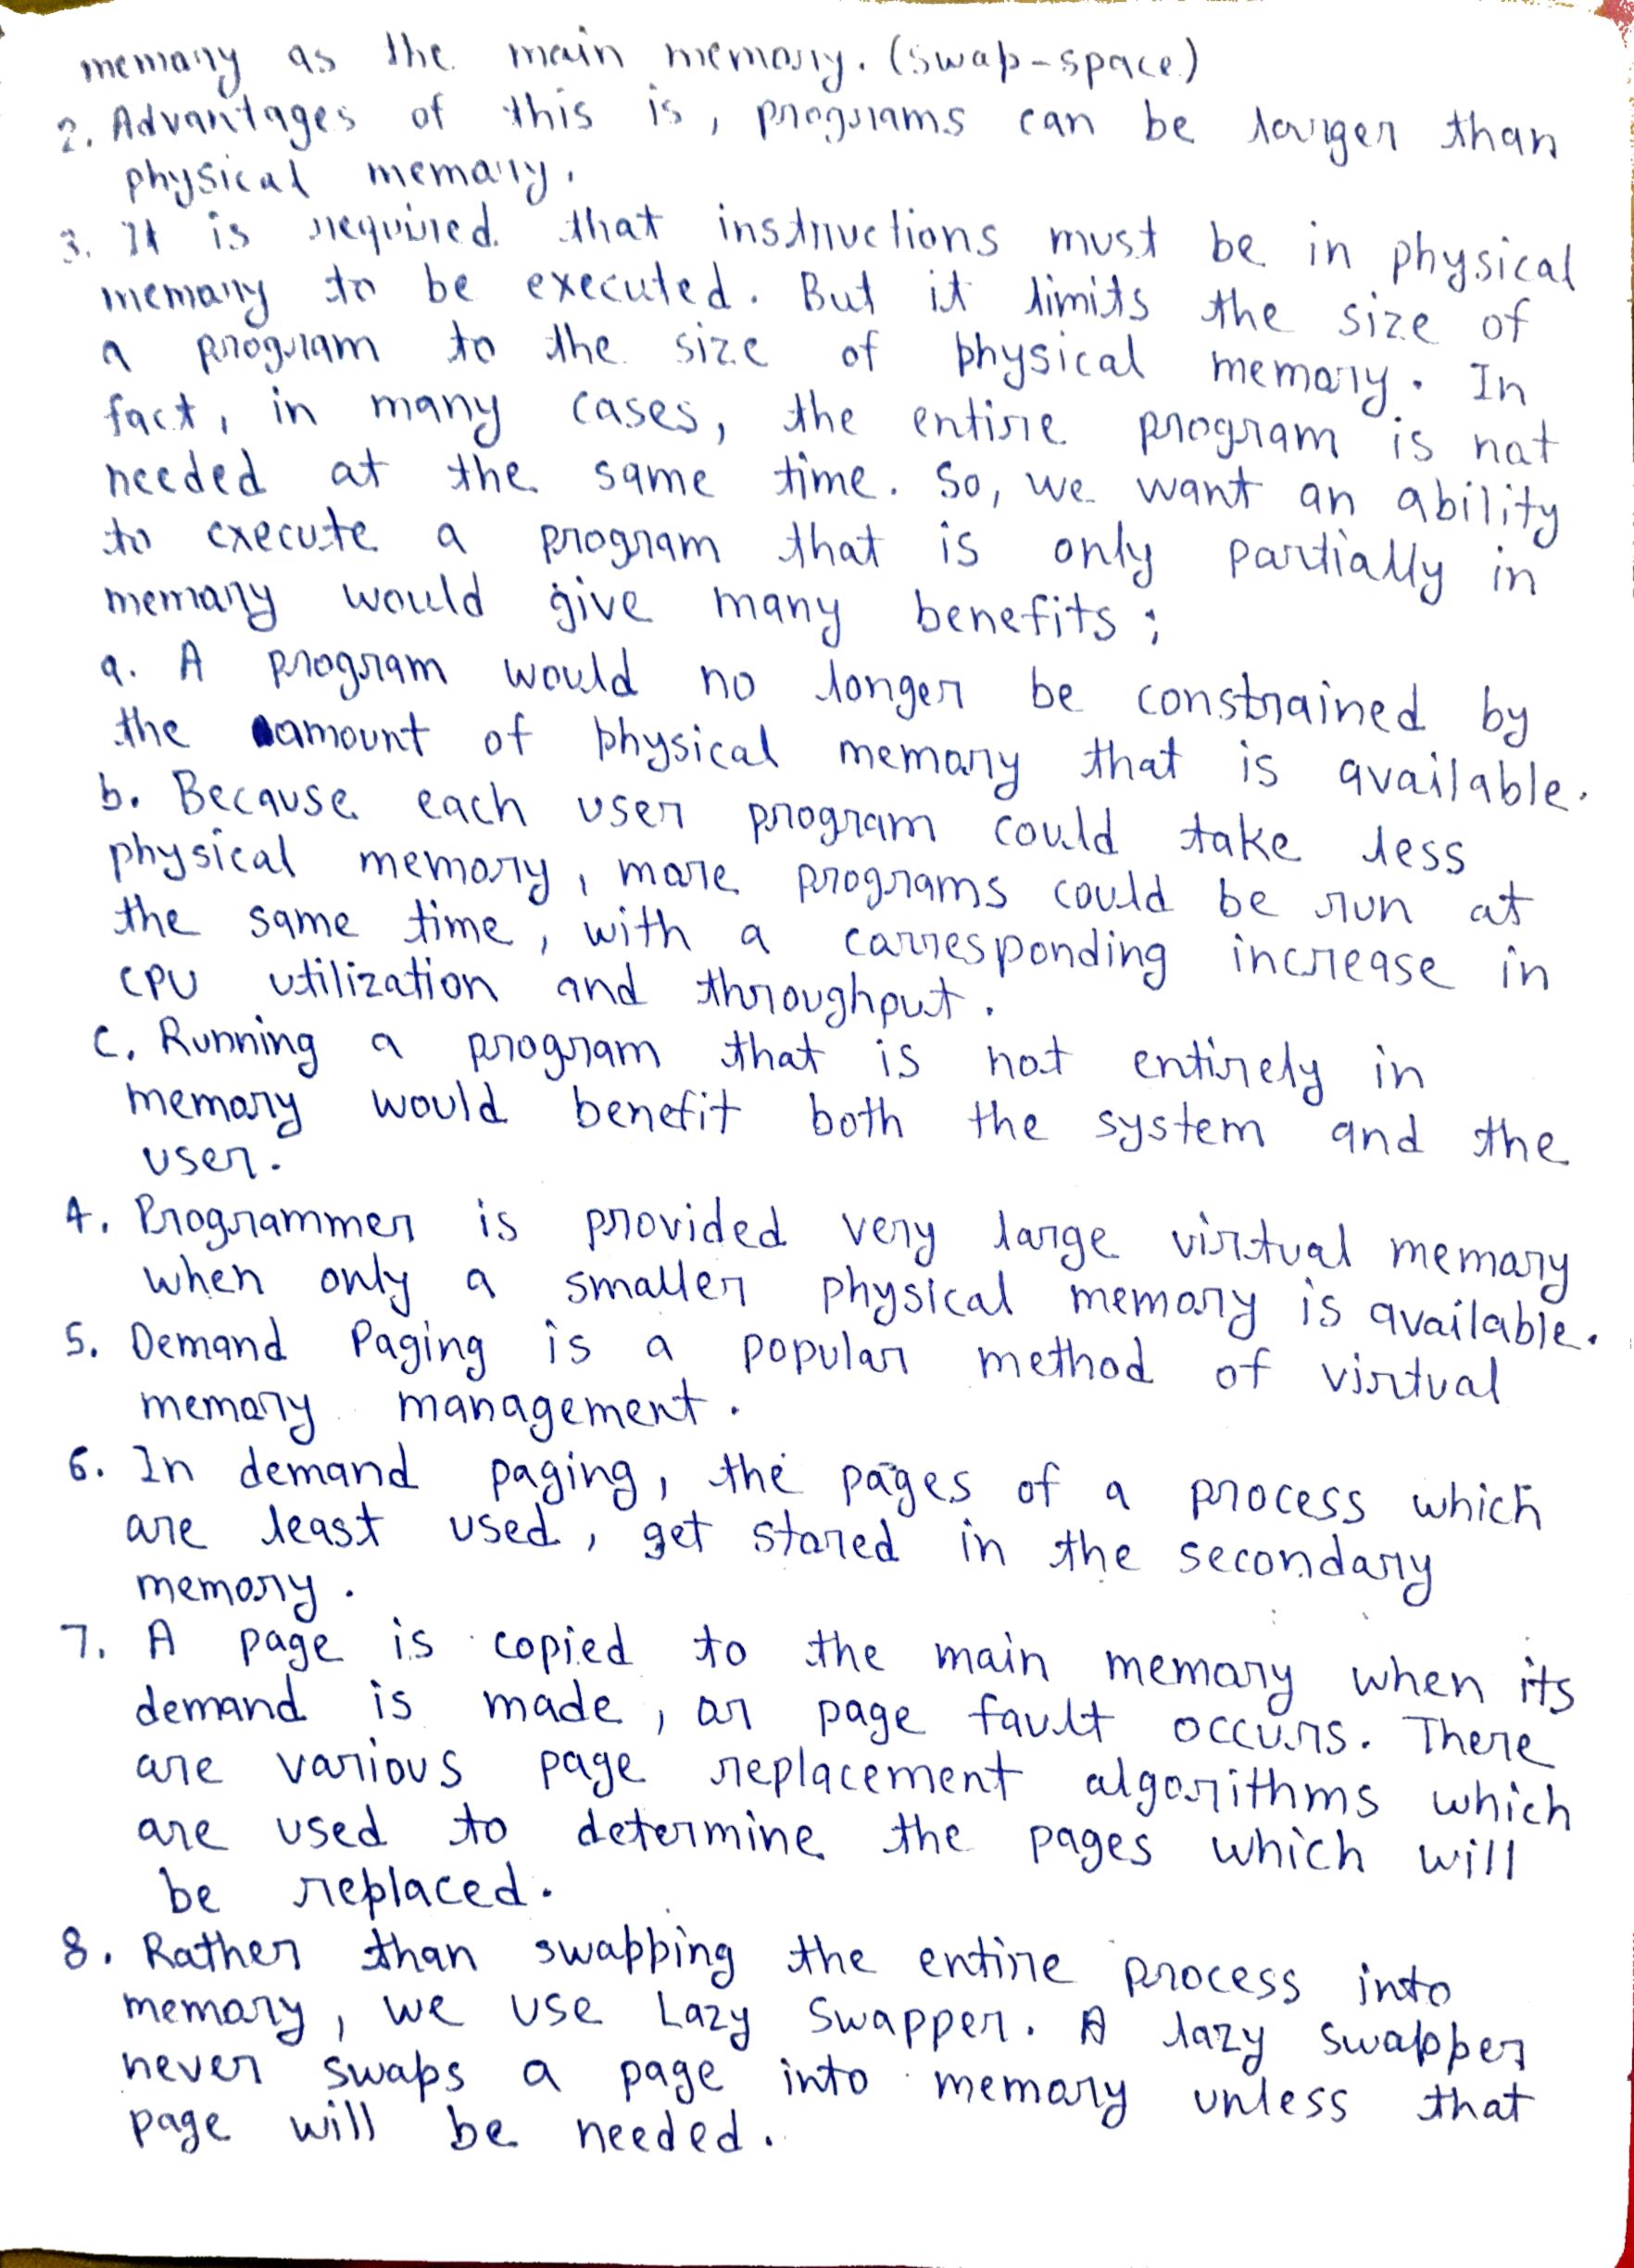 memory as the main memory. (swap-space)
2. Advantages of this is, programs can be larger than
physical memory.
3. It is required that instructions must be in physical
memory to be executed. But it limits the size of
a program to the size of physical memory. In
fact, in many cases, the entire program is not
needed at the same time. So, we want an ability
to execute a program that is only partially in
memory would give many benefits;
a. A program would no longer be constrained by
the amount of physical memory that is available.
b. Because each user program could take less
physical memory, more programs could be run at
the same time, with a corresponding increase in
CPU utilization and throughput.
c. Running a program that is not entirely in
memory would benefit both the system and the
user.
4. Programmer is provided very large virtual memory
when only a smaller physical memory is available.
5. Demand Paging is a popular method of virtual
memory management.
6. In demand paging, the pages of a process which
are least used, get stored in the secondary
memory.
7. A page is copied to the main memory when its
demand is made, or page fault occurs. There
are various page replacement algorithms which
are used to determine the pages which will
be replaced.
8. Rather than swapping the entire process into
memory, we use Lazy Swapper. A lazy swapper
never swaps a page into memory unless that
page will be needed.